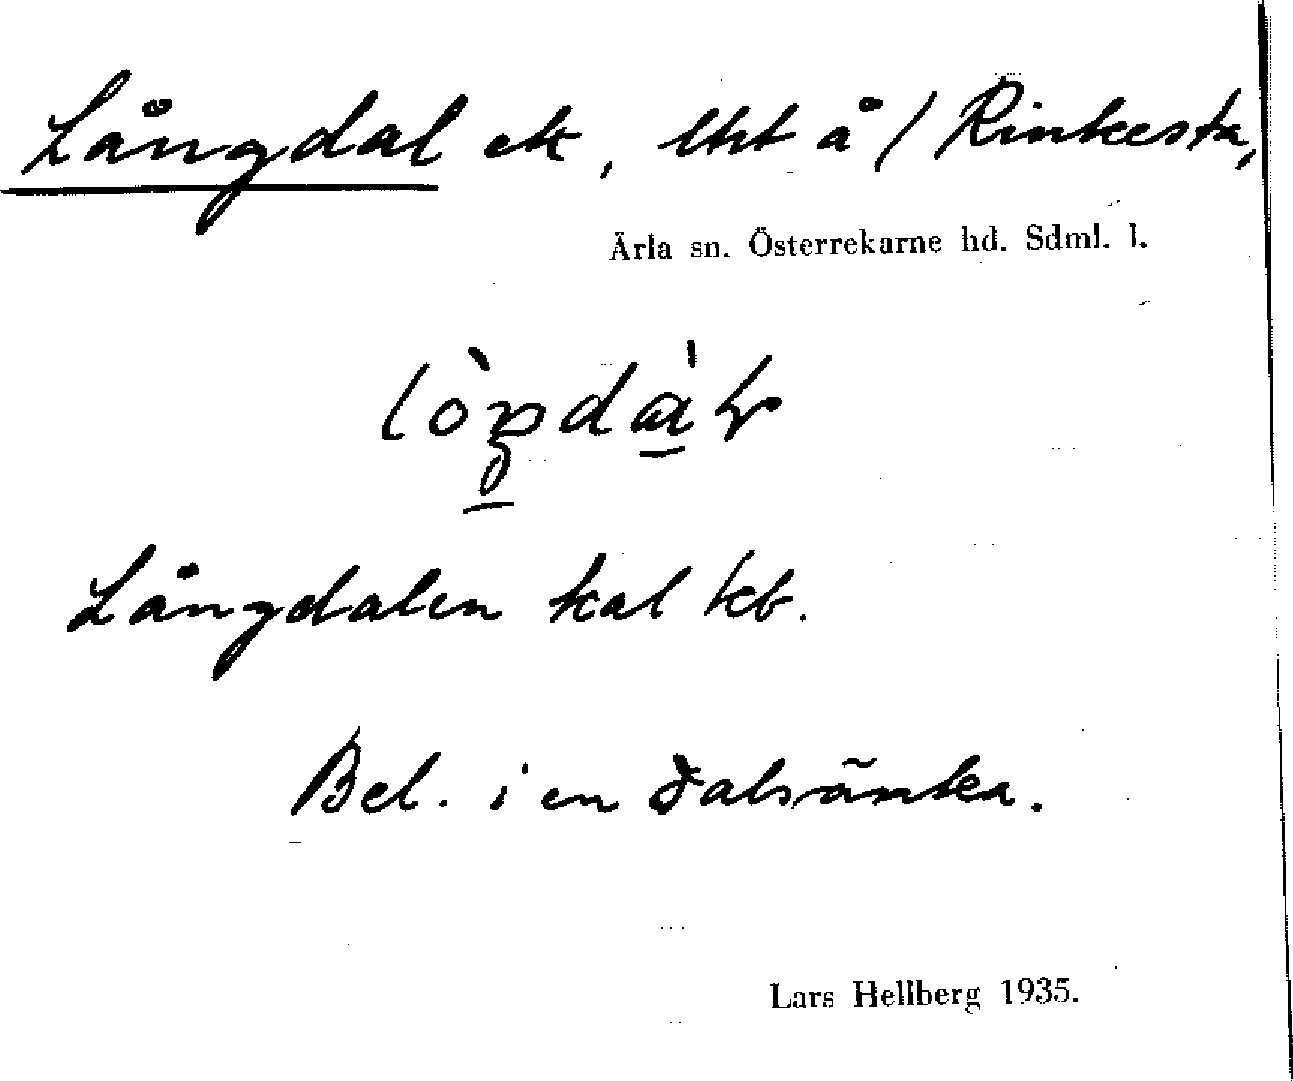 Långdal ek, lht å / Rinkesta,
Ärla sn. Österrekarne hd. Sdml. l.
Långdalen kal kb.
Bel. i en dalsänka.
Lars Hellberg 1935.